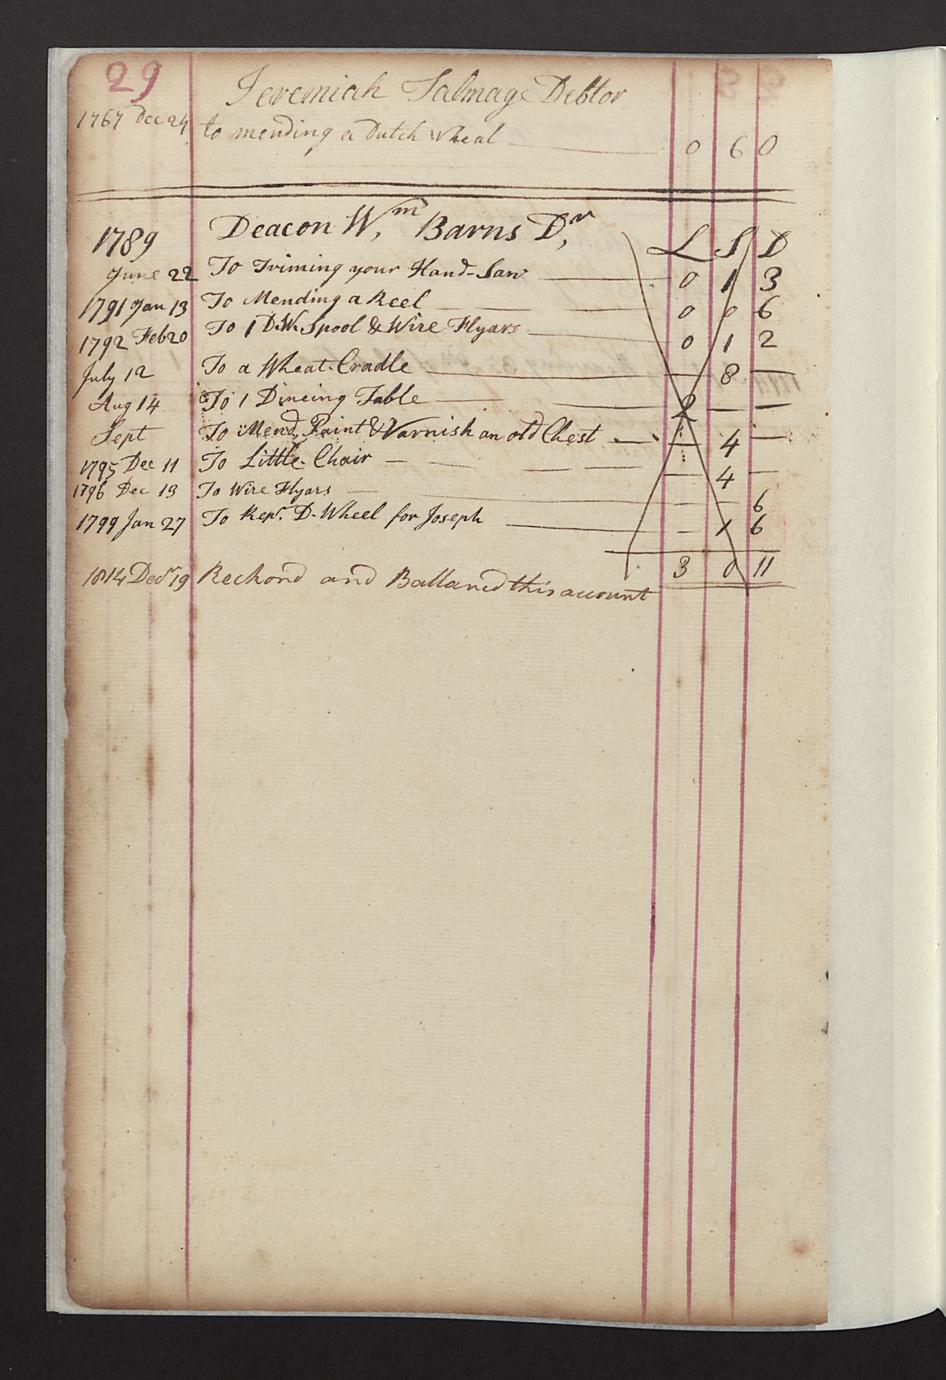 29
Jeremiah Talmage Debtor
1767 Dec 24 to mending a Dutch Wheal 0 6 0
1789 Deacon Wm Barns Dr L S D
June 22 To Triming your Hand-Saw 0 1 3
1791 Jan 13 To Mending a Reel 0 0 6
1792 Feb 20 To 1 D.W. Spool & Wire Flyars 0 1 2
July 12 To a Wheat-Cradle — 8 —
Aug 14 To 1 Dineing Table 2 — —
Sept To Mend, Paint & Varnish an old Chest — 4 —
1795 Dec 11 To Little Chair — 4 —
1796 Dec 13 To Wire Flyars — — 6
1799 Jan 27 To Repr. D-Wheel for Joseph — 1 6
3 0 11
1814 Decr 19 Reckond and Ballanced this account